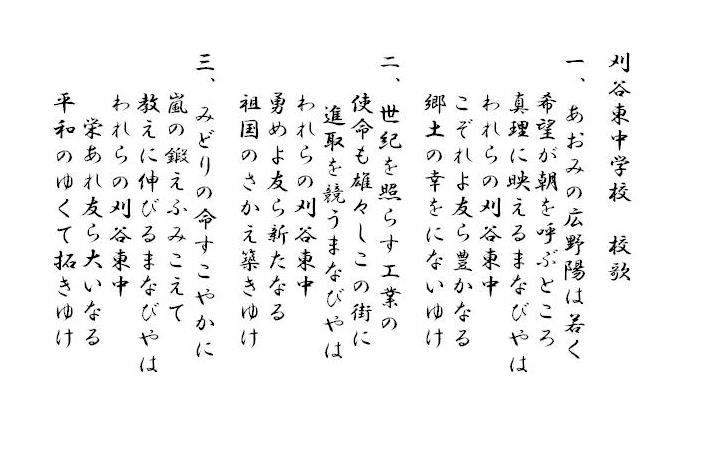 刈谷東中学校　校歌
一、あおみの広野陽は若く
希望が朝を呼ぶところ
真理に映えるまなびやは
われらの刈谷東中
こぞれよ友ら豊かなる
郷土の幸をにないゆけ
二、世紀を照らす工業の
使命も雄々しこの街に
進取を競うまなびやは
われらの刈谷東中
勇めよ友ら新たなる
祖国のさかえ築きゆけ
三、みどりの命すこやかに
嵐の鍛えふみこえて
教えに伸びるまなびやは
われらの刈谷東中
栄あれ友ら大いなる
平和のゆくて拓きゆけ